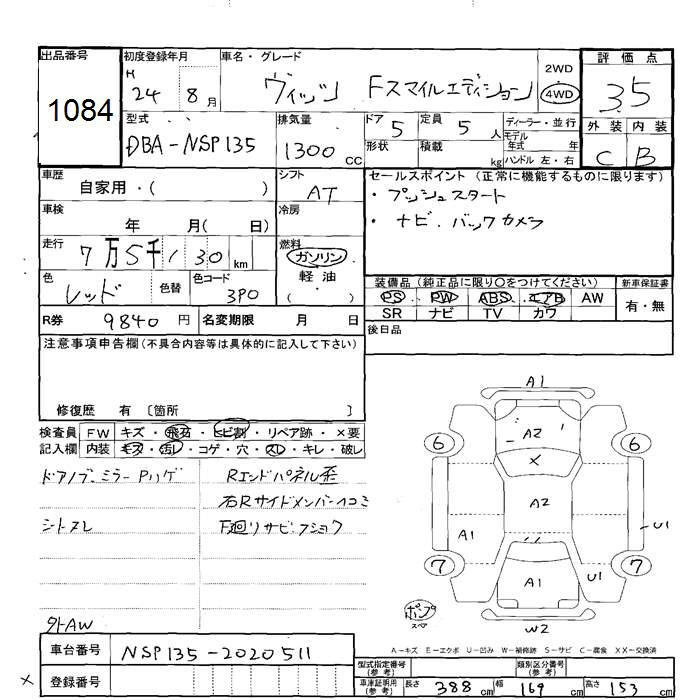 出品番号
1084
初度登録年月
H 24 8月
車名・グレード
ヴィッツ Fスマイルエディション
2WD
4WD
評価点
3.5
型式
DBA-NSP135
排気量
1300 CC
ドア 5
定員 5 人
形状
積載 kg
ディーラー・並行
モデル年式 年
ハンドル 左・右
外装 内装
C B
車歴
自家用・( )
シフト
AT
セールスポイント (正常に機能するものに限ります)
・プッシュスタート
・ナビ.バックカメラ
車検
年 月( 日)
冷房
走行
7万5千130km
燃料
ガソリン
軽油
( )
色
レッド
色替
色コード
3P0
装備品(純正品に限り○をつけてください)
新車保証書
PS PW ABS エアB AW
SR ナビ TV カワ
有・無
R券 9840円
名変期限 月 日
後日品
注意事項申告欄(不具合内容等は具体的に記入して下さい)
修復歴 有 〔箇所 〕
検査員 FW キズ・飛石・ヒビ割・リペア跡・×要
記入欄 内装 キズ・汚レ・コゲ・穴・スレ・キレ・破レ
ドアノブ.ミラーPハゲ
Rエンドパネル歪
右Rサイドメンバー凹コミ
シートスレ
下廻りサビ.フショク
外AW
A1
A2
6
6
×
A2
A1
U1
7
7
A1
U1
ポンプ
スペア
W2
A-キズ E-エクボ U-凹み W-補修跡 S-サビ C-腐食 XX-交換済
車台番号 NSP135-2020511
登録番号
×
型式指定番号(参考)
類別区分番号(参考)
車庫証明用(参考) 長さ 388 cm 幅 169 cm 高さ 153 cm